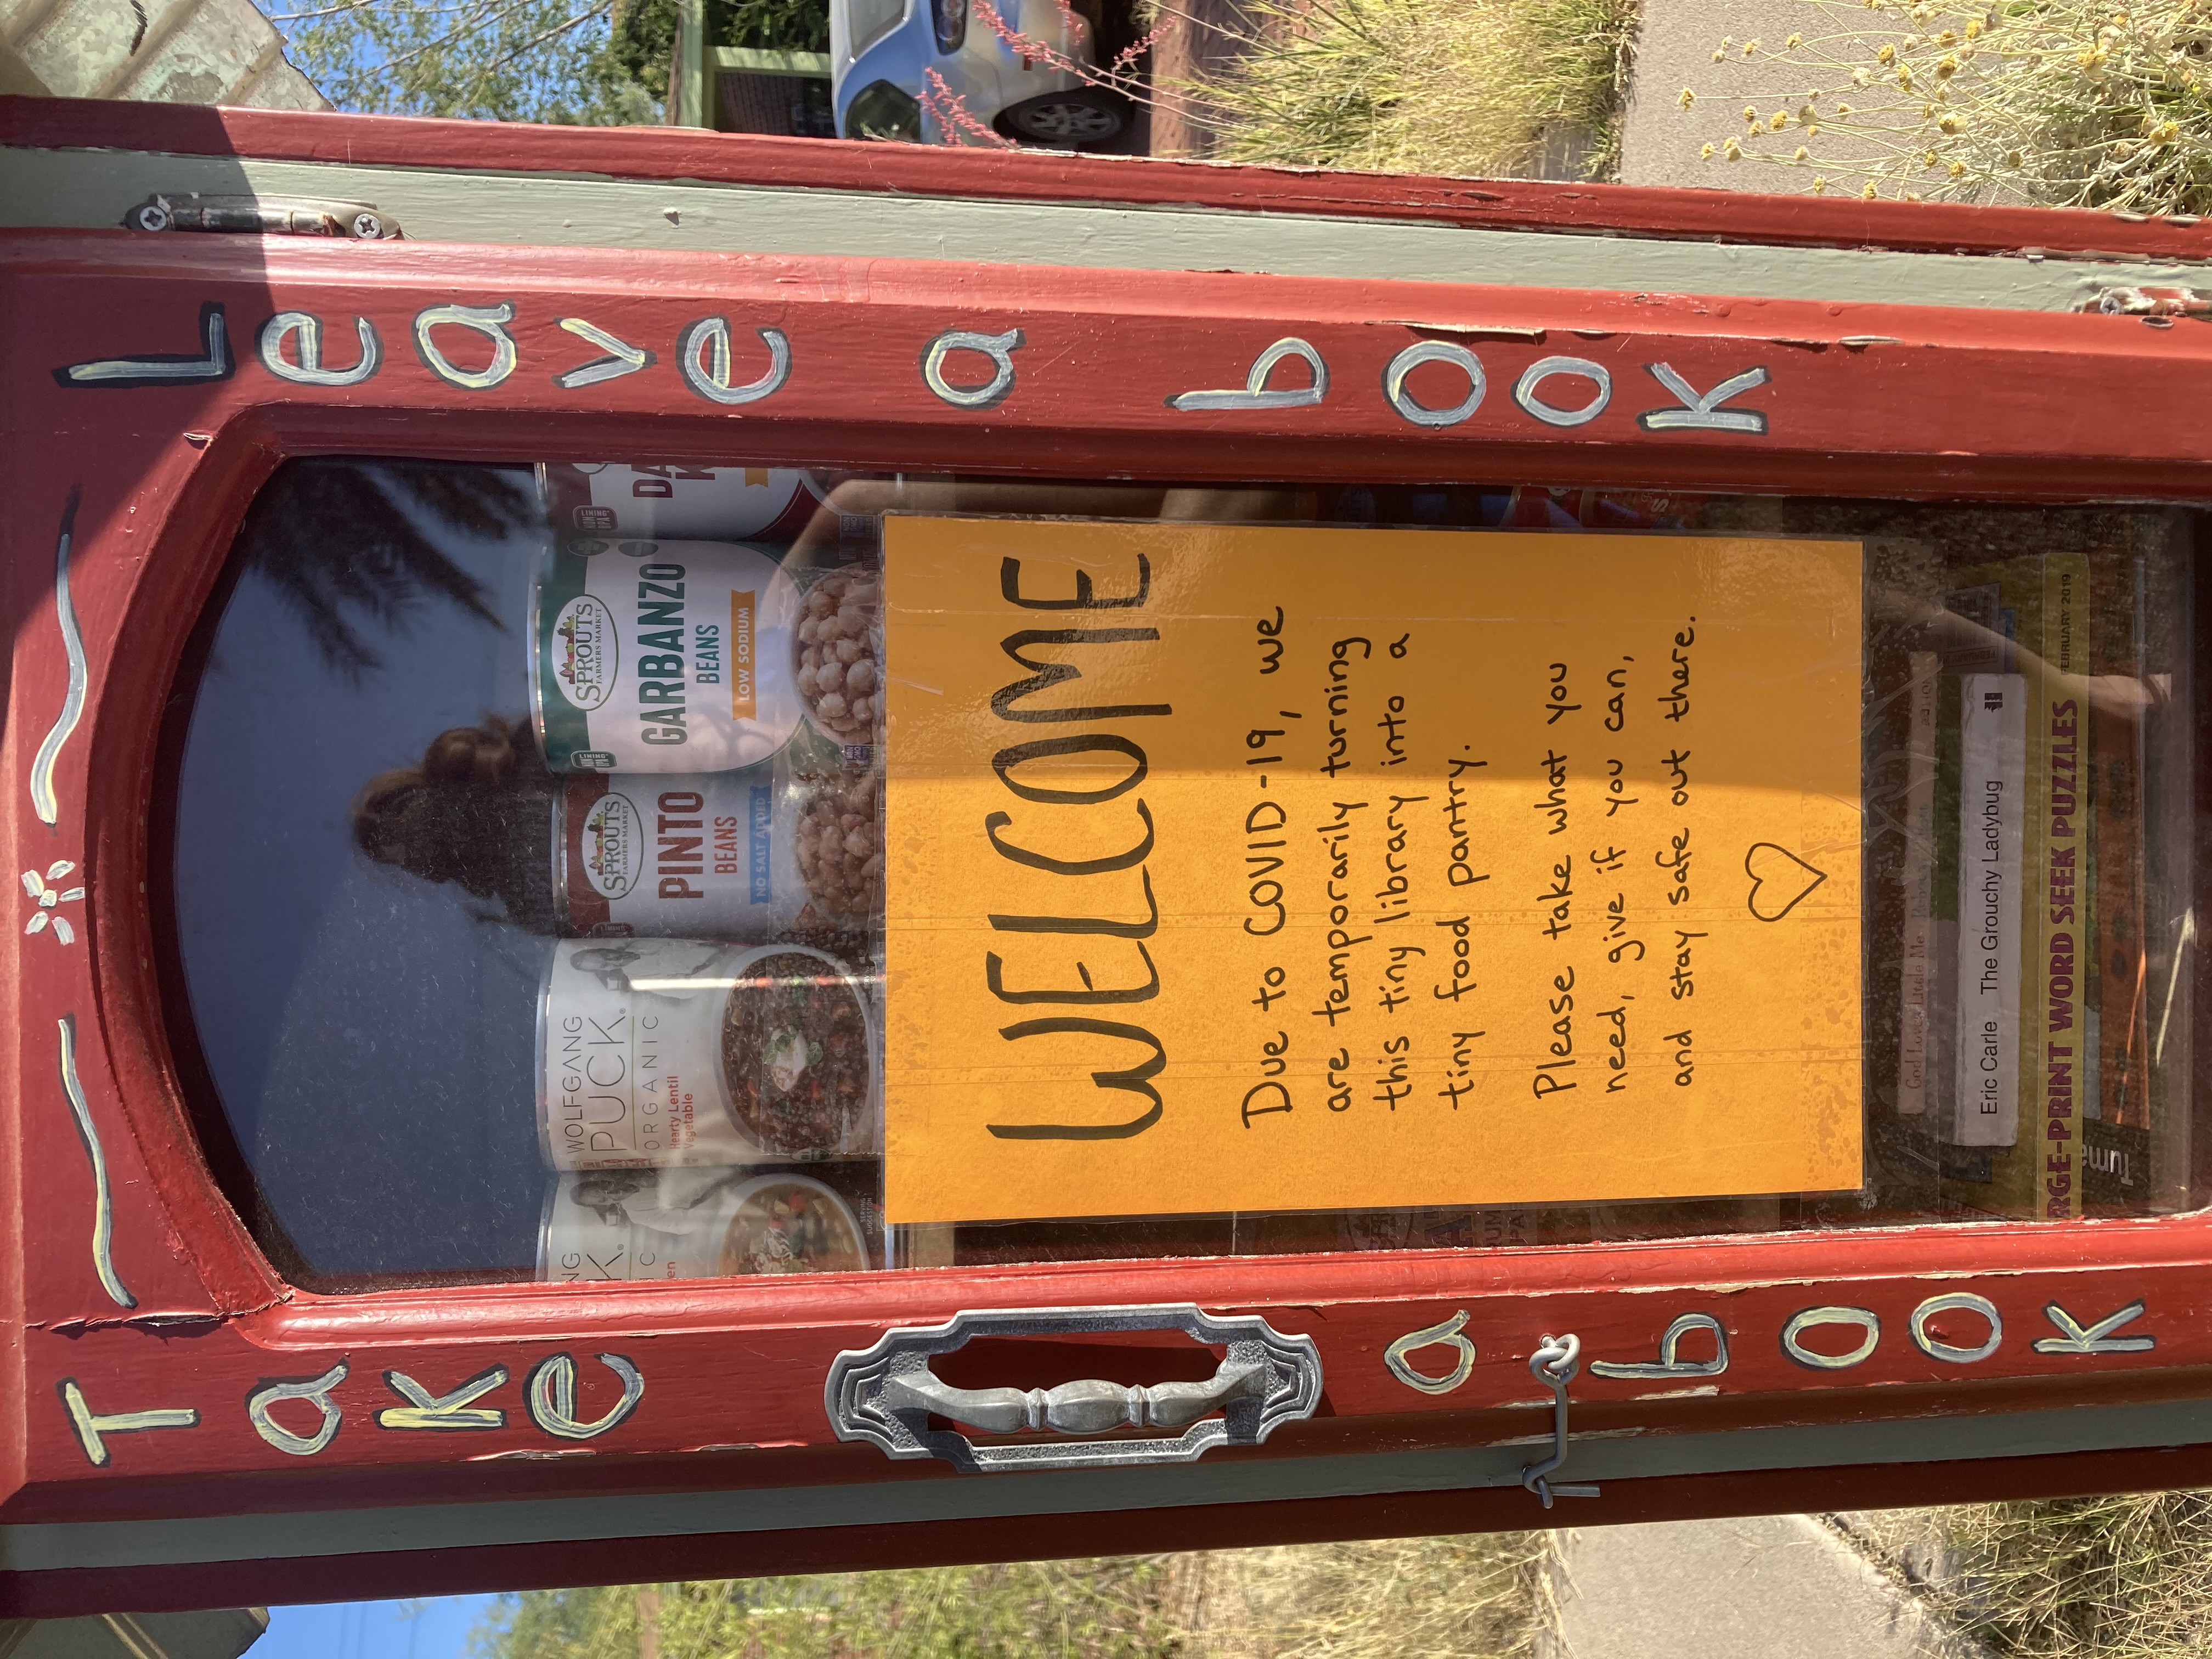 Take a book
Leave a book
WOLFGANG
PUCK
ORGANIC
Hearty Lentil
Vegetable
SPROUTS
FARMERS MARKET
PINTO
BEANS
NO SALT ADDED
SPROUTS
FARMERS MARKET
GARBANZO
BEANS
LOW SODIUM
WELCOME
Due to COVID-19, we
are temporarily turning
this tiny library into a
tiny food pantry.
Please take what you
need, give if you can,
and stay safe out there.
Eric Carle The Grouchy Ladybug
RGE-PRINT WORD SEEK PUZZLES FEBRUARY 2019